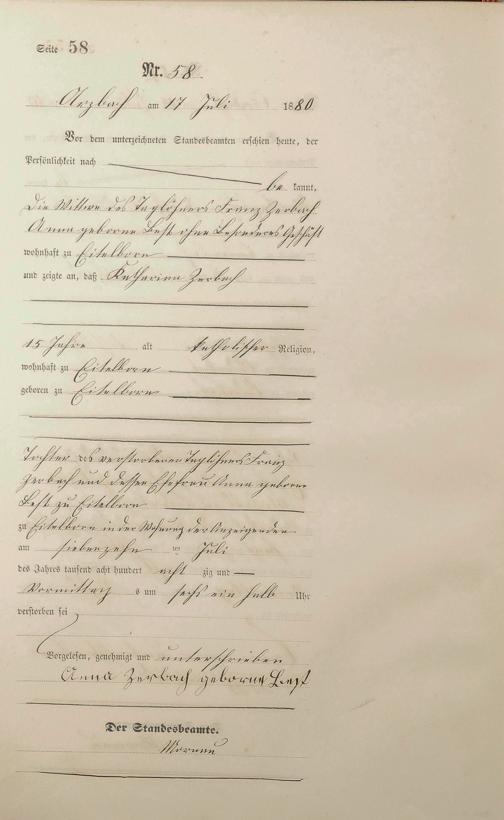 Seite 58
Nr. 58
Arzbach am 17 Juli 1880
Vor dem unterzeichneten Standesbeamten erschien heute, der
Persönlichkeit nach
be kannt,
die Wittwe des Taglöhners Franz Zerbach
Anna geborne Best ohne besonderes Geschäft
wohnhaft zu Eitelborn
und zeigte an, daß Katharina Zerbach
15 Jahre alt katholischer Religion,
wohnhaft zu Eitelborn
geboren zu Eitelborn
Tochter des verstorbenen Taglöhners Franz
Zerbach und dessen Ehefrau Anna geborne
Best zu Eitelborn
zu Eitelborn in der Wohnung der Anzeigenden
am siebenzehn ten Juli
des Jahres tausend acht hundert acht zig und
Vormittag s um sechs ein halb Uhr
verstorben sei
Vorgelesen, genehmigt und unterschrieben
Anna Zerbach geborne Best
Der Standesbeamte.